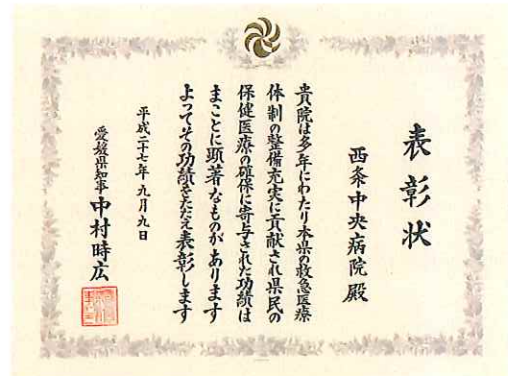 表彰状
西条中央病院殿
貴院は多年にわたり本県の救急医療
体制の整備充実に貢献され県民の
保健医療の確保に寄与された功績は
まことに顕著なものがあります
よってその功績をたたえ表彰します
平成二十七年九月九日
愛媛県知事中村時広